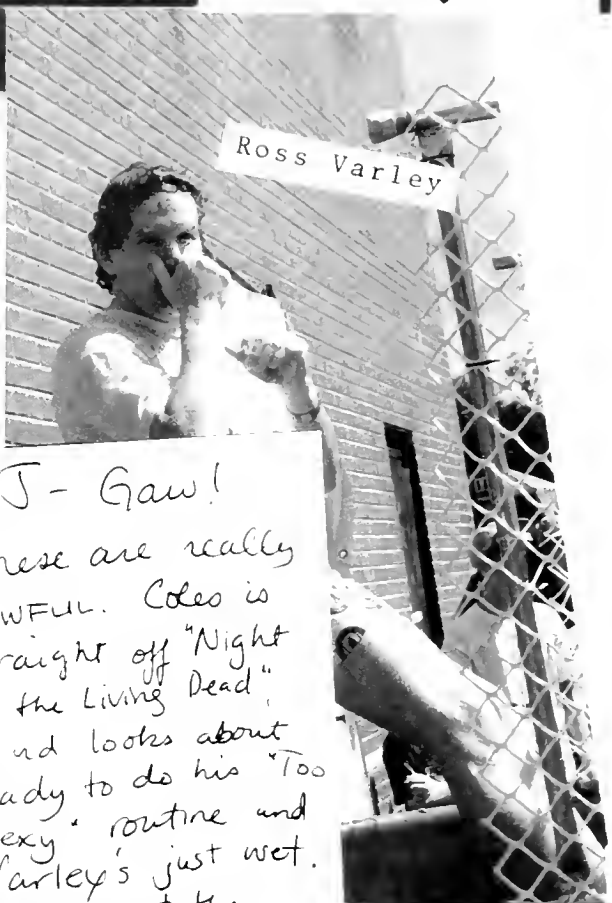 Ross Varley
J - Gaw!
hese are really
WFUL. Coles is
raight off "Night
the Living Dead",
nd looks about
ady to do his "Too
exy" routine and
arley's just wet.